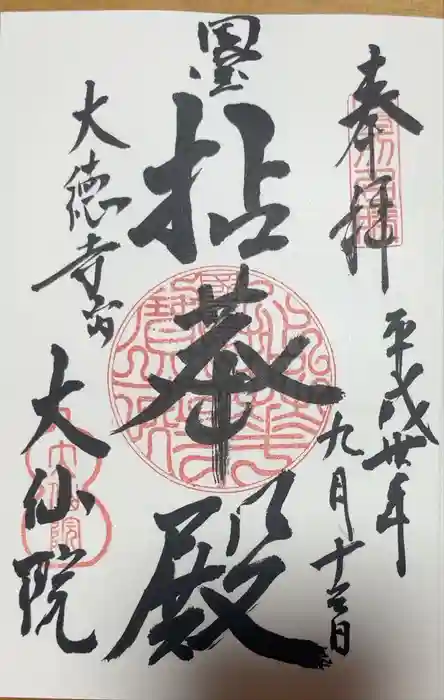 奉拝
平成卅年
九月十三日
国宝
拈華殿
大徳寺内
大仙院